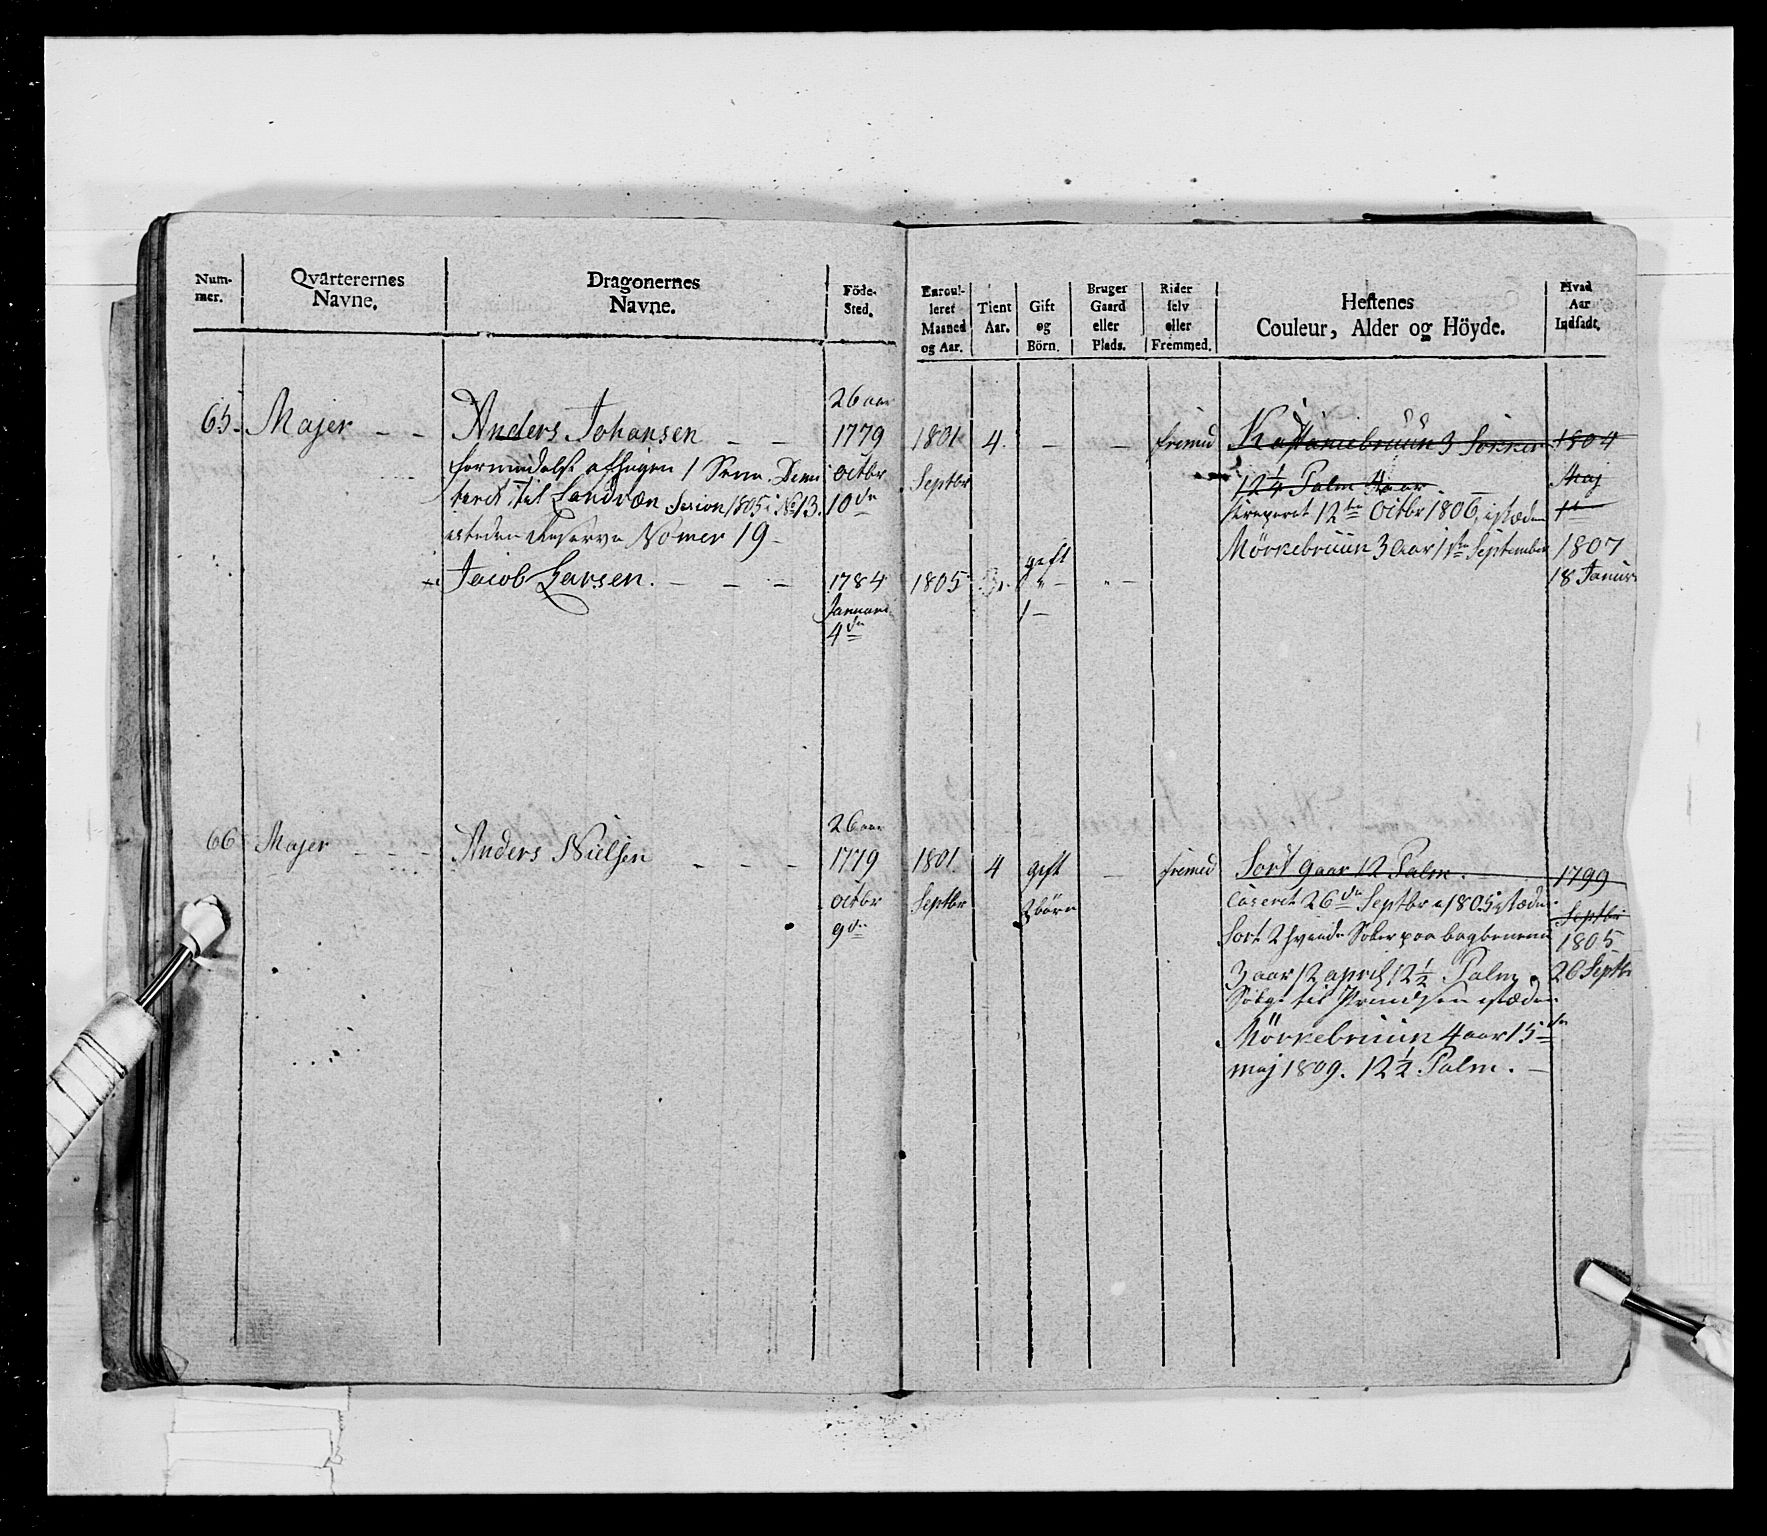 Num-
mer.
Qvarterernes
Navne.
Dragonernes
Navne.
Föde-
Sted.
Enroul-
leret
Maaned
og Aar.
Tient
Aar.
Gift
og
Börn.
Bruger
Gaard
eller
Plads.
Rider
selv
eller
Fremmed.
Hestenes
Couleur, Alder og Höyde.
Hvad
Aar
Indsadt.
65. Majer - - Anders Johansen - -
til Landvæn Sesion 1805 i No 13.
Reserve Nomer 19 -
26 aar
1779
octbr
10de
1801
Septbr
4. - - fremd
Kastaniebruun 3 Sokker
12 1/4 Palm aar
12te Octbr 1806, istæden
Mörkebruun 3 aar 1ste September
1804
Maj
1t
1807
18 Januar
Jacob Larsen. - - -
1784
Januari
4de
1805
gift
" -
1 -
" -
66 Majer - - - Anders Nielsen - - -
26 aar
1779
octbr
9de
1801.
Septbr
4 gift
2 börn
- fremd
Sort 9 aar 12 Palm.
Caseret 26de Septbr 1805 istæden
Sort 2 hvide Soker paa bagbenene
3 aar 12 april 12 1/2 Palm.
Solgt til istæden
Mörkebruun 4 aar 15de
maj 1809. 12 1/2 Palm. -
1799
Septbr
1805
26 Septbr